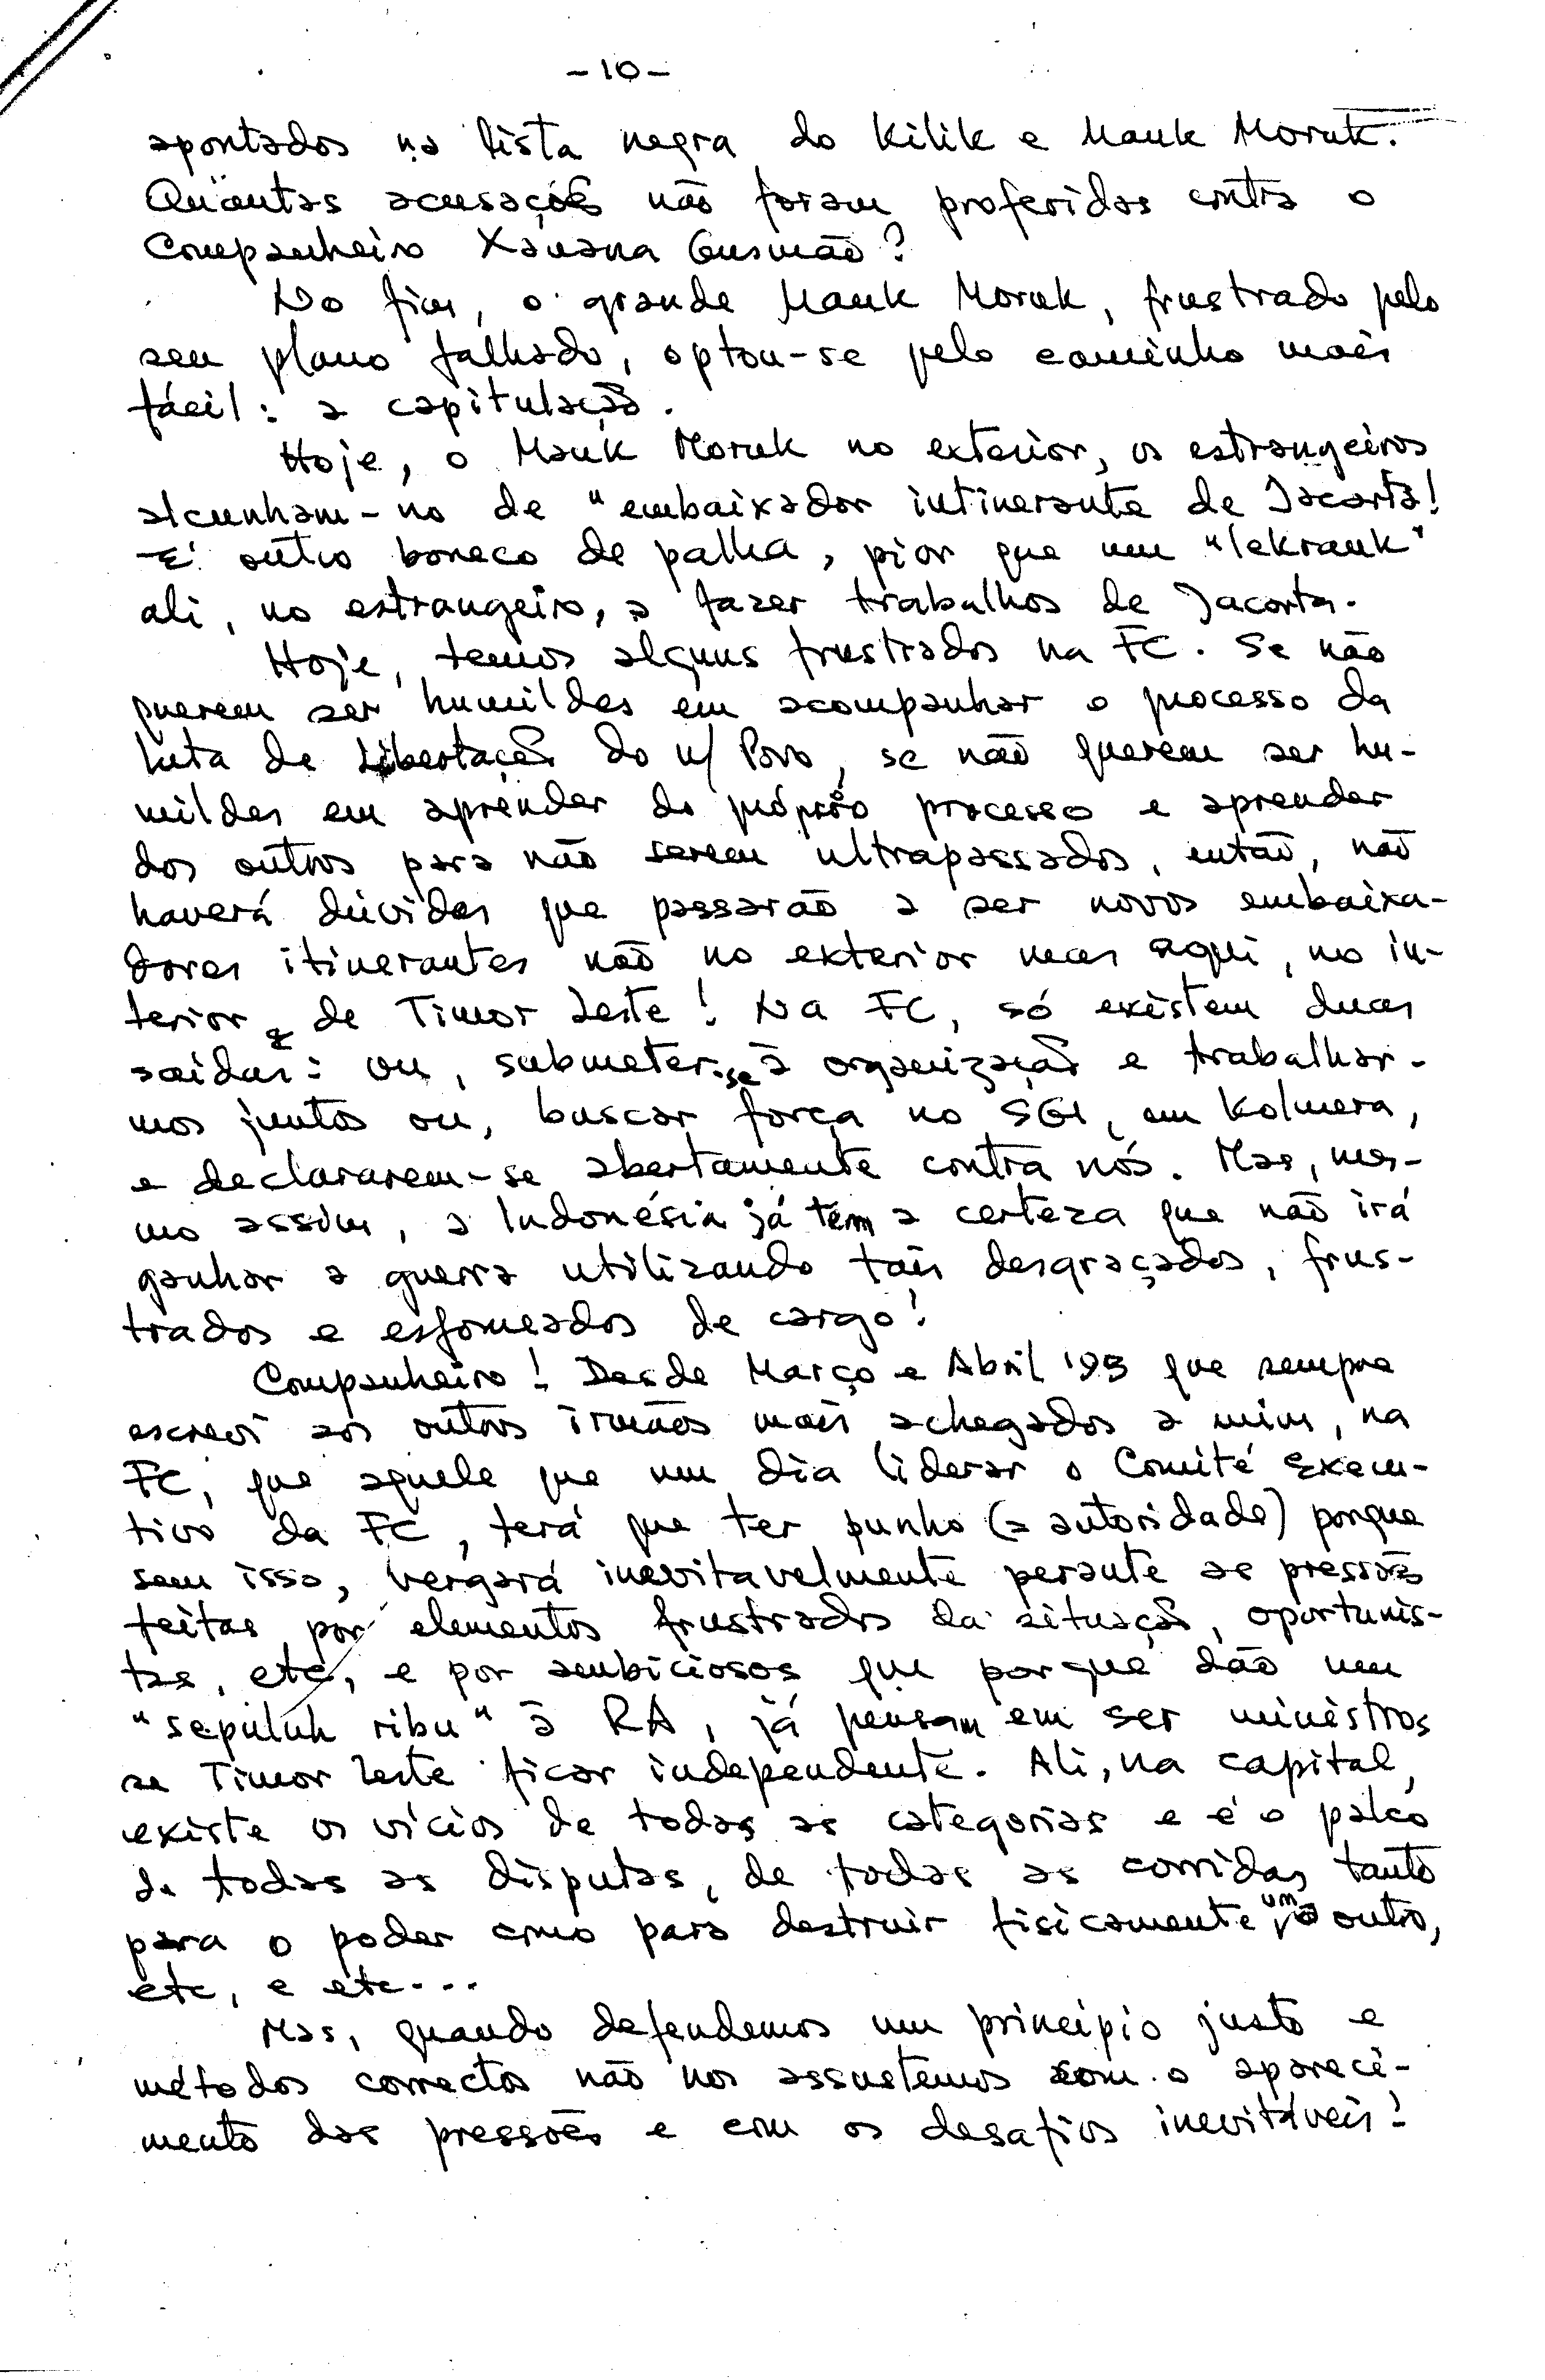 -10-
apontados na lista negra do Kilik e Mauk Moruk.
Quantas acusações não foram proferidas contra o
Companheiro Xanana Gusmão?
No fim, o grande Mauk Moruk, frustrado pelo
seu plano falhado, optou-se pelo caminho mais
fácil: a capitulação.
Hoje, o Mauk Moruk no exterior, os estrangeiros
alcunham-no de "embaixador intinerante de Jacarta!
É outro boneco de palha, pior que um "lekrauk"
ali, no estrangeiro, a fazer trabalhos de Jacarta.
Hoje, temos alguns frustrados na FC. Se não
querem ser humildes em acompanhar o processo da
luta de Libertação do n/ Povo, se não querem ser hu-
mildes em aprender do próprio processo e aprender
dos outros para não serem ultrapassados, então, não
haverá dúvidas que passarão a ser novos embaixa-
dores itinerantes não no exterior mas aqui, no in-
terior de Timor Leste! Na FC, só existem duas
saídas: ou, submeter-se à organização e trabalhar-
mos juntos ou, buscar força no SGI, em Kolmera,
e declararem-se abertamente contra nós. Mas, mes-
mo assim, a Indonésia já tem a certeza que não irá
ganhar a guerra utilizando tais desgraçados, frus-
trados e esfomeados de cargo!
Companheiro! Desde Março e Abril '95 que sempre
escrevi aos outros irmãos mais achegados a mim, na
FC, que aquele que um dia liderar o Comité Execu-
tivo da FC, terá que ter punho (= autoridade) porque
sem isso, vergará inevitavelmente perante as pressões
feitas por elementos frustrados da situação, oportunis-
tas, etc, e por ambiciosos que porque dão um
"sepuluh ribu" à RA, já pensam em ser ministros
se Timor Leste ficar independente. Ali, na capital,
existe os vícios de todas as categorias e é o palco
de todas as disputas, de todas as corridas tanto
para o poder como para destruir fisicamente um a outro,
etc, e etc...
Mas, quando defendemos um princípio justo e
métodos correctos não nos assustemos com o apareci-
mento das pressões e com os desafios inevitáveis!